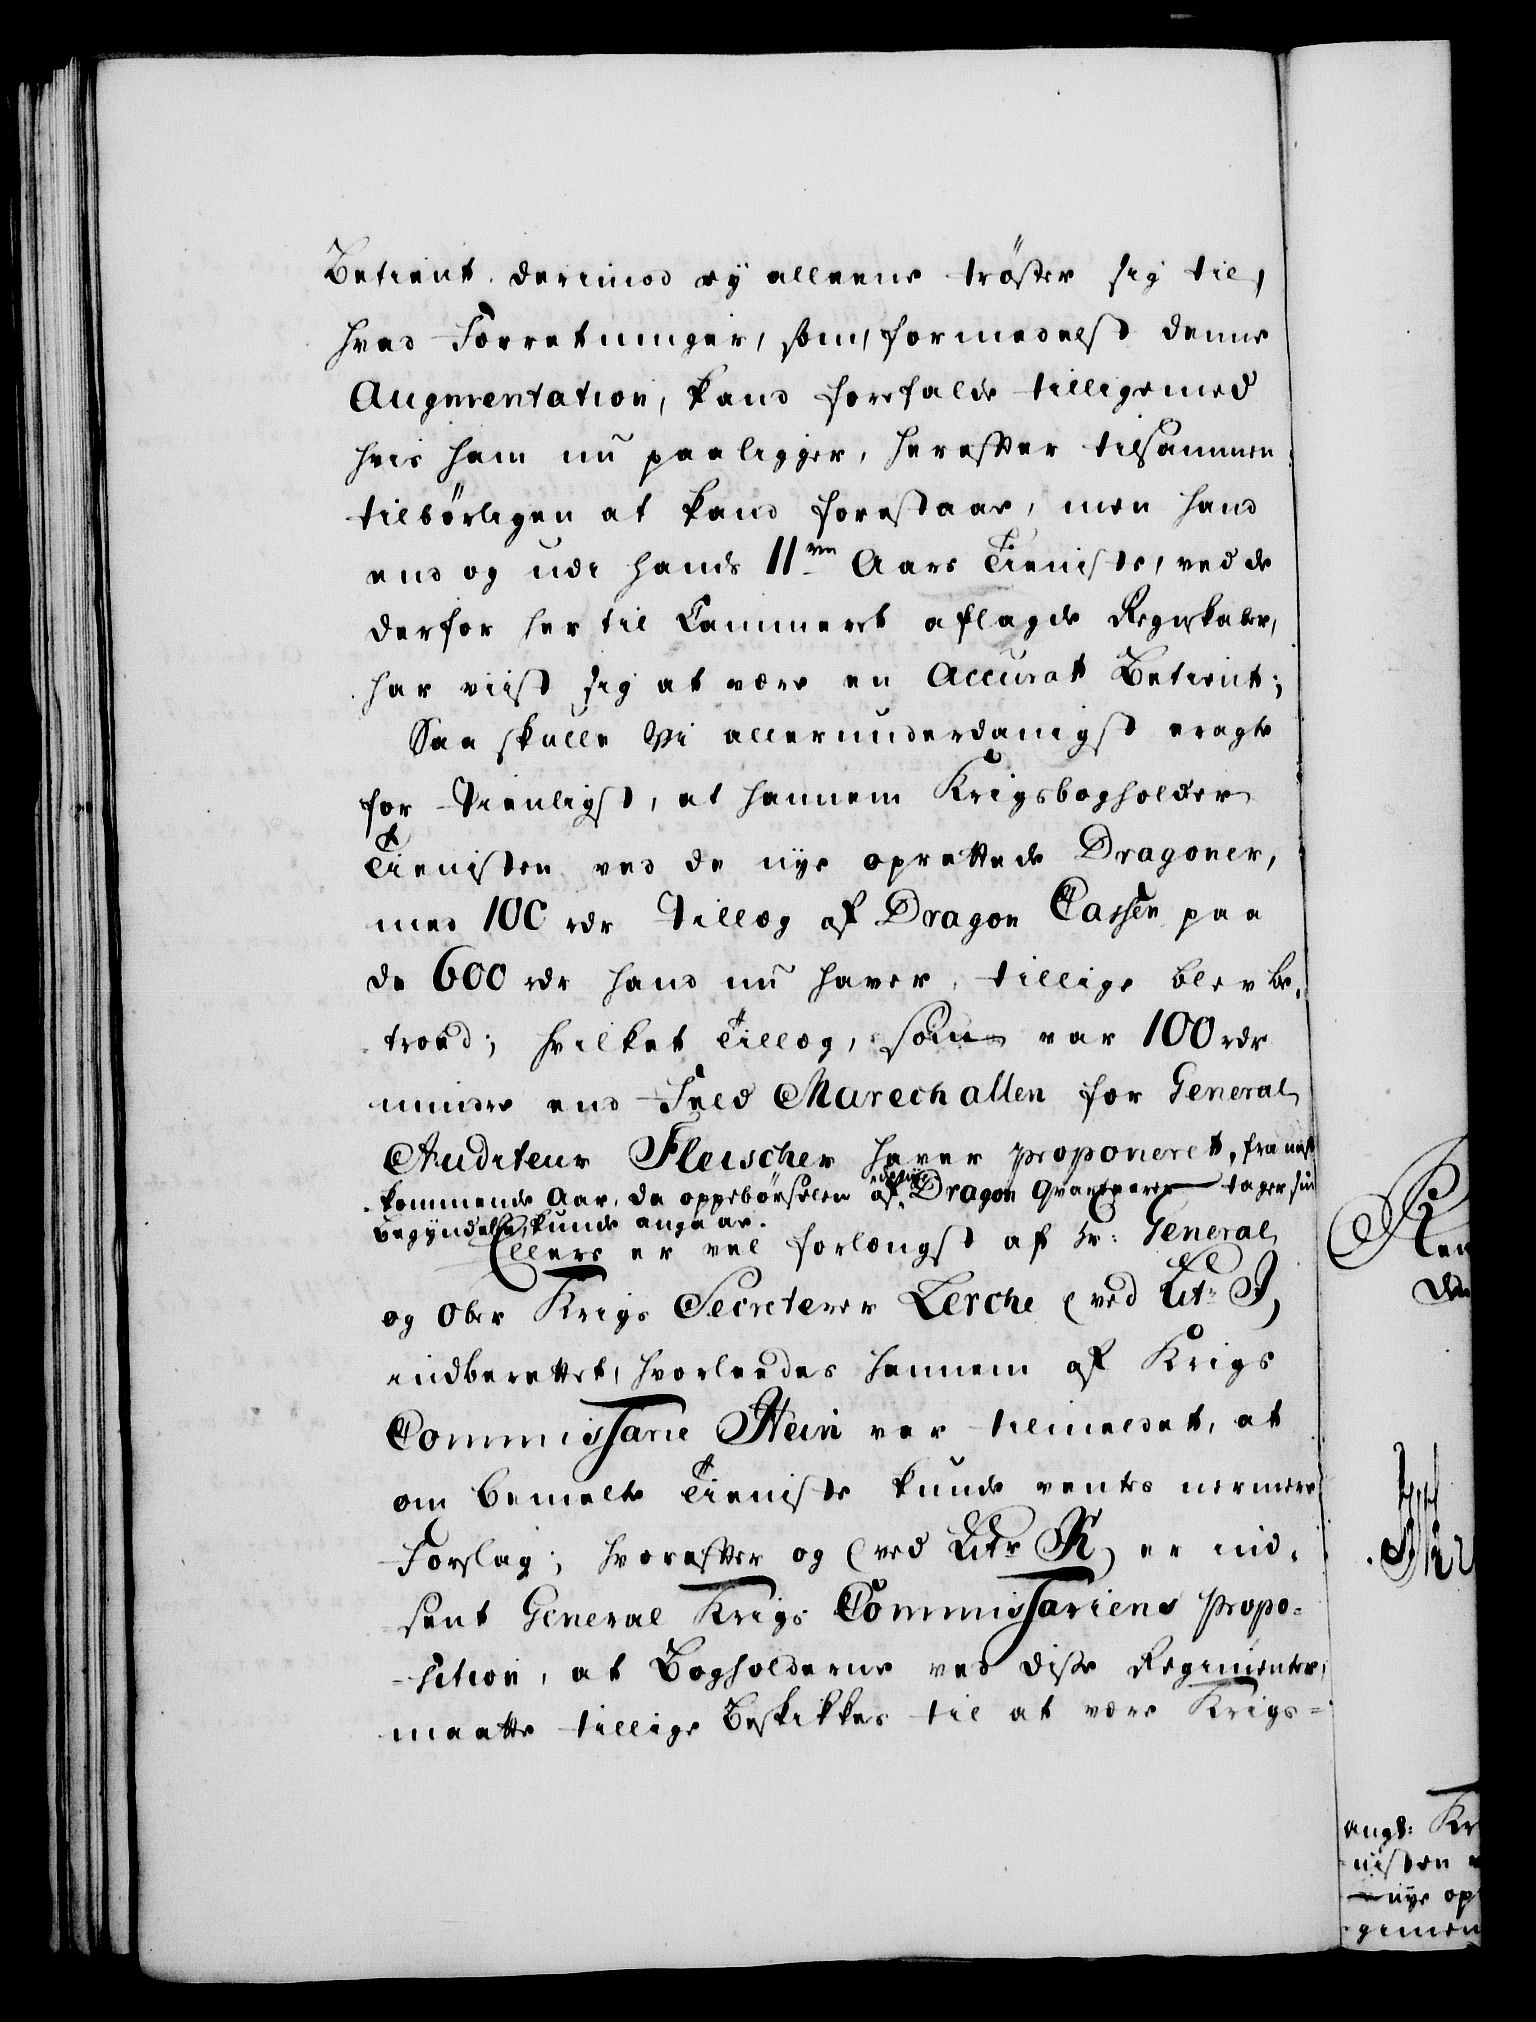 Betient derimod ey alleene trøster sig til,
hvad Forretninger, som, formedelst denne
Augmentation, kand forefalde tilligemed
hvis ham nu paaligger, herefter tilsammen
tilbørligen at kand forestaae, men hand
end og udi hands 11ve Aars Tieniste, ved de
derfor her til Cammeret aflagde Regnskaber,
har viist sig at være en Accurat Betient;
Saa skulle Vi allerunderdanigst eragte
for tienligst, at hannem Krigsbogholder
Tienisten ved de nye oprettede Dragoner,
med 100 rdr Tillæg af Dragon Cassen paa
de 600 rdr hand nu haver, tillige blev be-
troed; hvilket Tillæg, som var 100 rdr
mindre end Feld Marechallen for General
Auditeur Fleischer haver proponeret, fra næst
kommende Aar, da oppebørselen af Dragon Qvarterer tager sin
begyndelse, kunde angaae.
Ellers er vel forlængst af Hr: General
og Ober Krigs Secreterer Lerche (ved Litr: J)
indberettet, hvorleedes hannem af Krigs
Commissarie Stein var tilmeldet, at
om bemelte Tieniste kunde ventes nermere
Forslag; hvorefter og (ved Litr K) er ind-
sent General Krigs Commissariens Propo-
sition, at Bogholderne ved disse Regimenter,
maatte tillige Beskikkes til at være Krigs-
angl: Kr
nisten
nye op
gimen